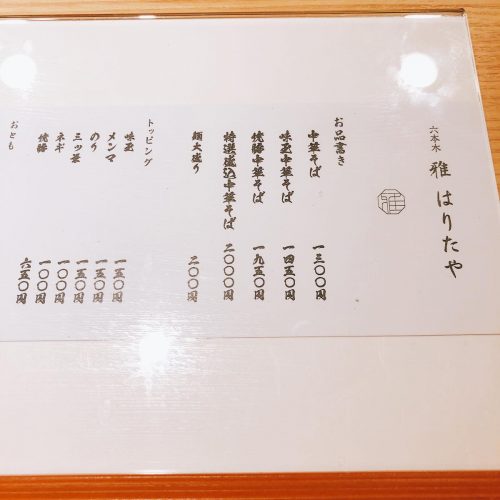 六本木
雅 はりたや
お品書き
中華そば 一三〇〇円
味玉中華そば 一四五〇円
焼豚中華そば 一九五〇円
特選盛込中華そば 二〇〇〇円
麺大盛り 二〇〇円
トッピング
味玉 一五〇円
メンマ 一五〇円
のり 一五〇円
三ッ葉 一〇〇円
ネギ 一〇〇円
焼豚 六五〇円
おとも